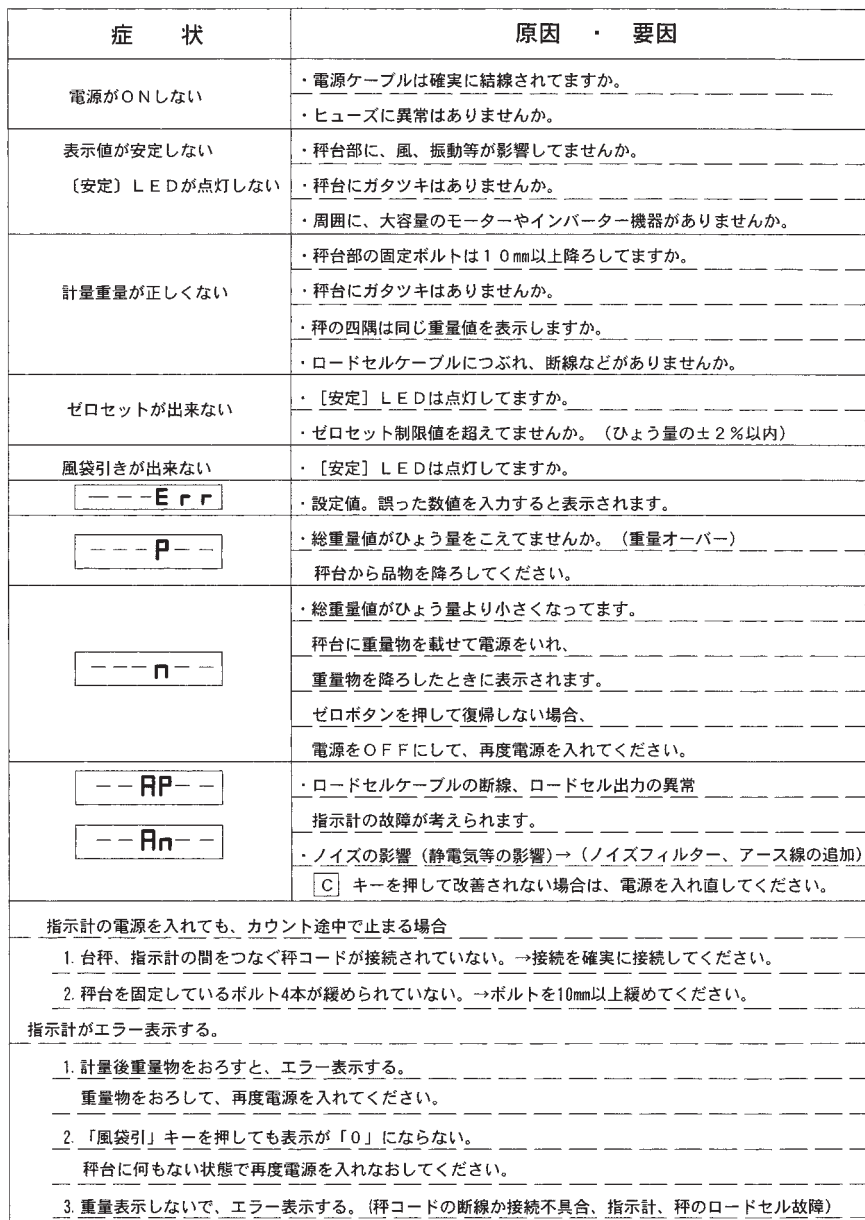 症　状
原因　・　要因
電源がＯＮしない
・電源ケーブルは確実に結線されてますか。
・ヒューズに異常はありませんか。
表示値が安定しない
〔安定〕ＬＥＤが点灯しない
・秤台部に、風、振動等が影響してませんか。
・秤台にガタツキはありませんか。
・周囲に、大容量のモーターやインバーター機器がありませんか。
計量重量が正しくない
・秤台部の固定ボルトは１０㎜以上降ろしてますか。
・秤台にガタツキはありませんか。
・秤の四隅は同じ重量値を表示しますか。
・ロードセルケーブルにつぶれ、断線などがありませんか。
ゼロセットが出来ない
・［安定］ＬＥＤは点灯してますか。
・ゼロセット制限値を超えてませんか。（ひょう量の±２％以内）
風袋引きが出来ない
・［安定］ＬＥＤは点灯してますか。
－－－Ｅｒｒ
・設定値。誤った数値を入力すると表示されます。
－－－Ｐ－－
・総重量値がひょう量をこえてませんか。（重量オーバー）
秤台から品物を降ろしてください。
－－－ｎ－－
・総重量値がひょう量より小さくなってます。
秤台に重量物を載せて電源をいれ、
重量物を降ろしたときに表示されます。
ゼロボタンを押して復帰しない場合、
電源をＯＦＦにして、再度電源を入れてください。
－－ＡＰ－－
－－Ａｎ－－
・ロードセルケーブルの断線、ロードセル出力の異常
指示計の故障が考えられます。
・ノイズの影響（静電気等の影響）→（ノイズフィルター、アース線の追加）
Ｃ キーを押して改善されない場合は、電源を入れ直してください。
指示計の電源を入れても、カウント途中で止まる場合
1. 台秤、指示計の間をつなぐ秤コードが接続されていない。→接続を確実に接続してください。
2. 秤台を固定しているボルト4本が緩められていない。→ボルトを10㎜以上緩めてください。
指示計がエラー表示する。
1. 計量後重量物をおろすと、エラー表示する。
重量物をおろして、再度電源を入れてください。
2. 「風袋引」キーを押しても表示が「０」にならない。
秤台に何もない状態で再度電源を入れなおしてください。
3. 重量表示しないで、エラー表示する。（秤コードの断線か接続不具合、指示計、秤のロードセル故障）